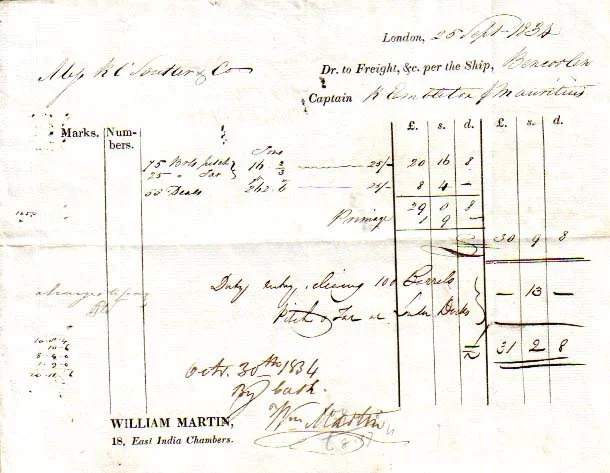 London, 25 Sept 1834
Mess
& Co
Dr. to Freight, &c. per the Ship, Bencoolen
Captain R Embleton f Mauritius
Marks. Num-bers. £. s. d. £. s. d.
75 Bols pitch
25 " Tar } 16 2/3 25/- 20 16 8
50 Deals 262.6 25/- 8 4 —
29 0 8
Primage 1 9 —
30 9 8
Duty entry, clearing 100 Barrels
Pitch & Tar at London Docks } — 13 —
31 2 8
Octr. 30th 1834
By Cash.
Wm Martin
WILLIAM MARTIN,
18, East India Chambers.